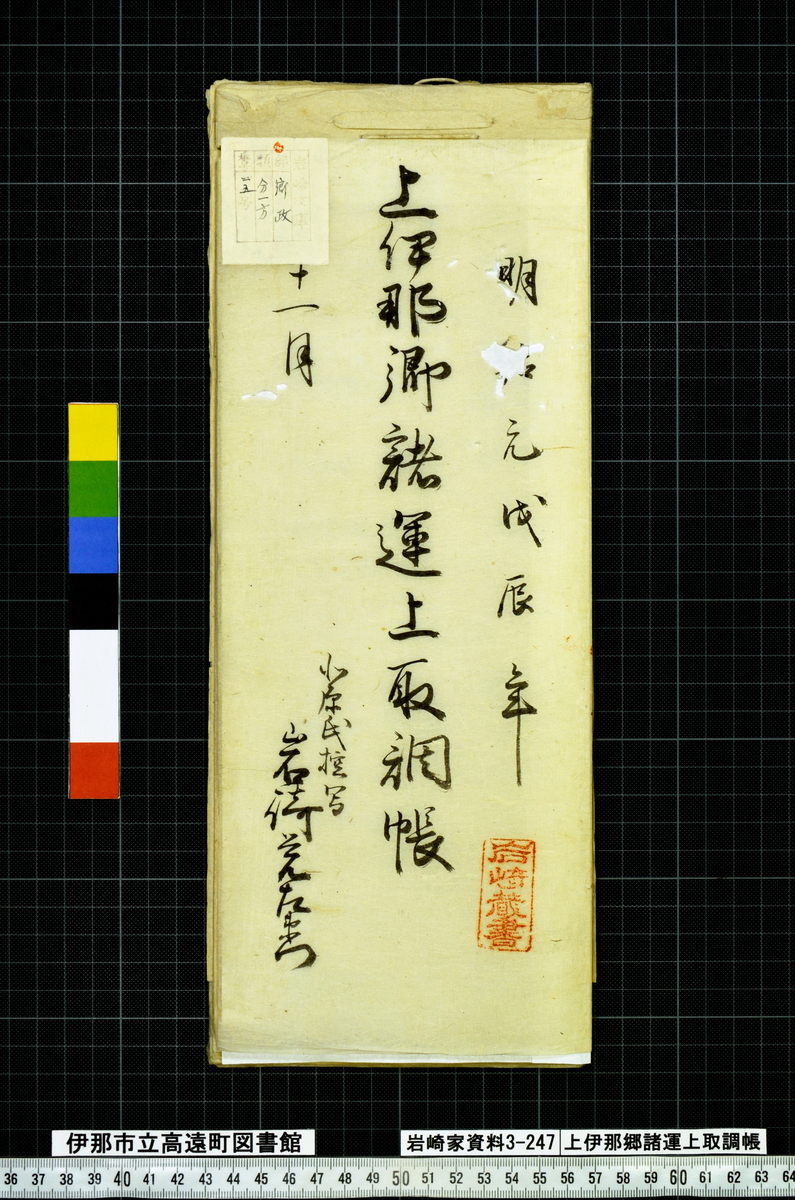 明治元戊辰年
上伊那郷諸運上取調帳
十一月
岩崎
左衛門
岩崎蔵書
郷政
分一方
伊那市立高遠町図書館
岩崎家資料3-247
上伊那郷諸運上取調帳
36 37 38 39 40 41 42 43 44 45 46 47 48 49 50 51 52 53 54 55 56 57 58 59 60 61 62 63 64